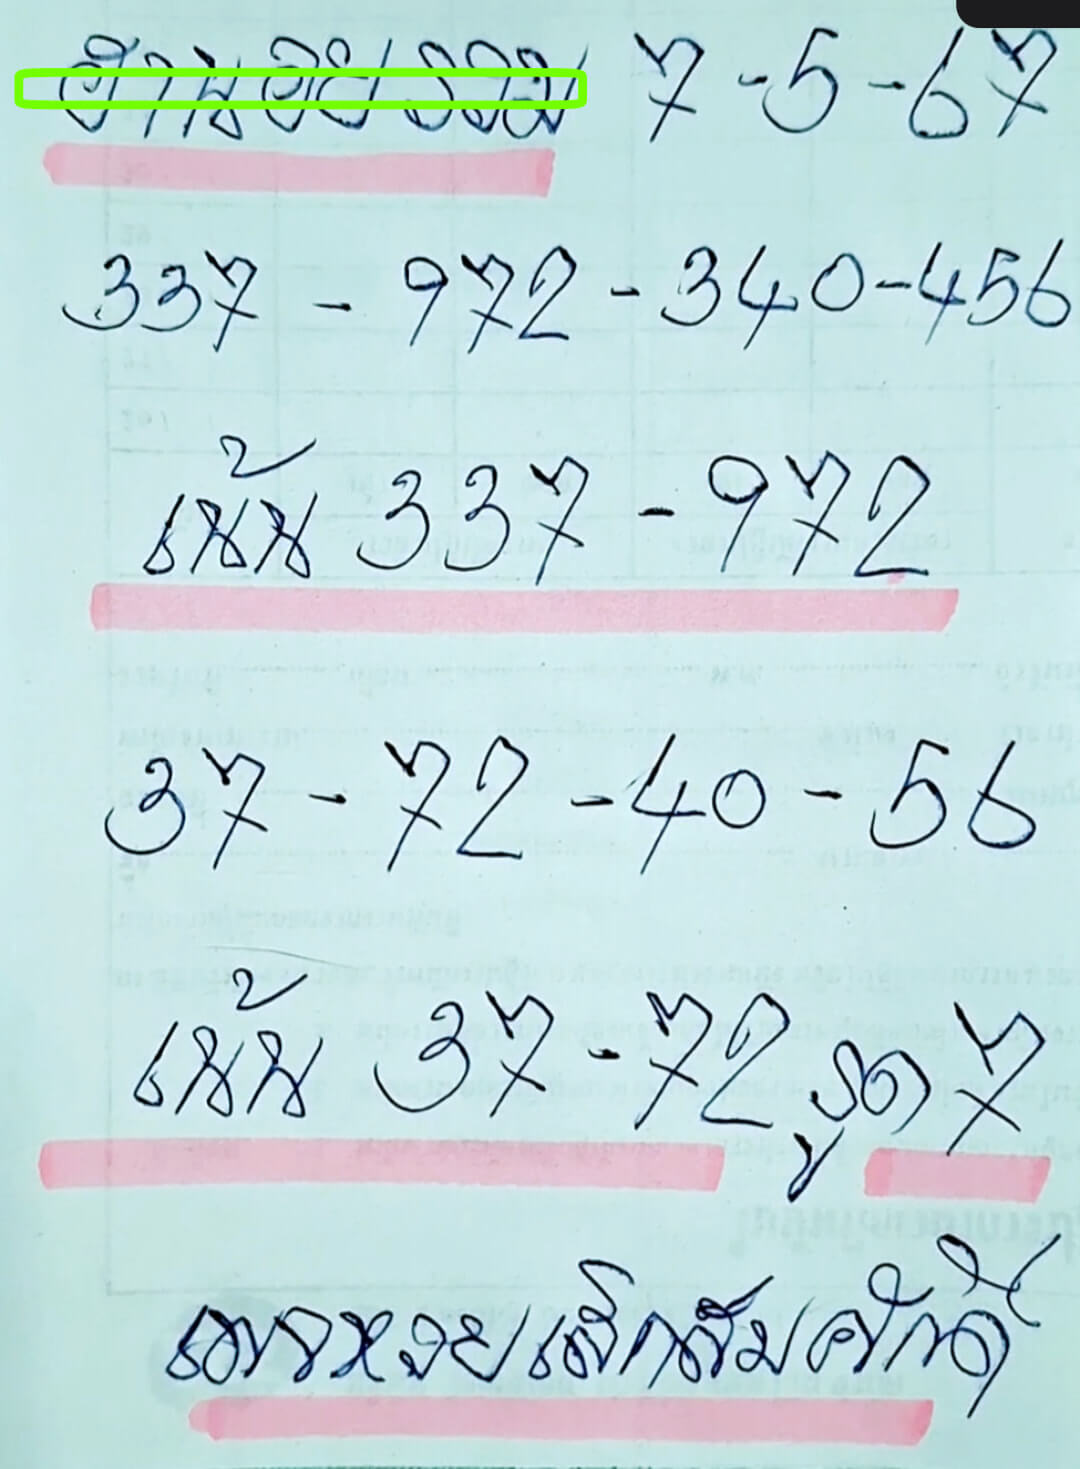 ฮานอย รวม 7-5-67
337 - 972 - 340-456
เน้น 337 - 972
37 - 72 - 40 - 56
เน้น 37 - 72 รูด 7
หวย